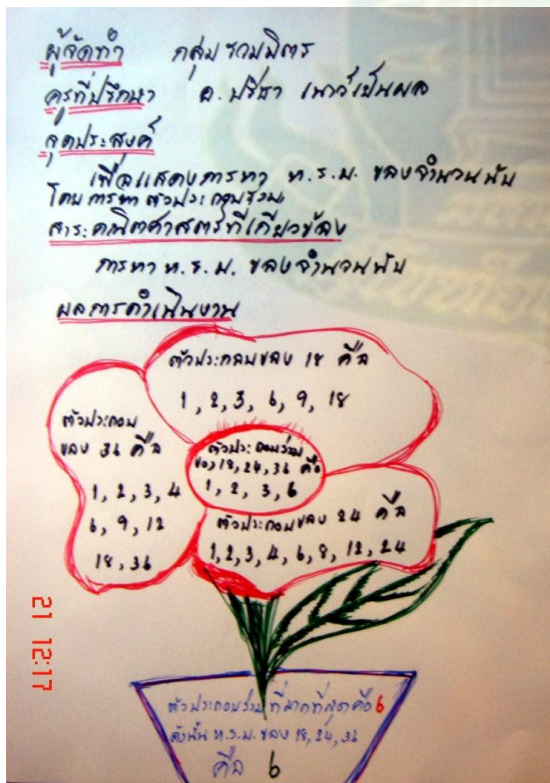 ผู้จัดทำ กลุ่มรวมมิตร
ครูที่ปรึกษา อ.ปรีชา เนาว์เป็นผล
จุดประสงค์
เพื่อแสดงการหา ห.ร.ม. ของจำนวนนับ
โดยการหาตัวประกอบร่วม
สาระคณิตศาสตร์ที่เกี่ยวข้อง
การหา ห.ร.ม. ของจำนวนนับ
ผลการดำเนินงาน
ตัวประกอบของ 18 คือ
1, 2, 3, 6, 9, 18
ตัวประกอบ
ของ 36 คือ
1, 2, 3, 4
6, 9, 12
18, 36
ตัวประกอบร่วม
ของ 18, 24, 36 คือ
1, 2, 3, 6
ตัวประกอบของ 24 คือ
1, 2, 3, 4, 6, 8, 12, 24
ตัวประกอบร่วมที่มากที่สุดคือ 6
ดังนั้น ห.ร.ม. ของ 18, 24, 36
คือ 6
21 12:17